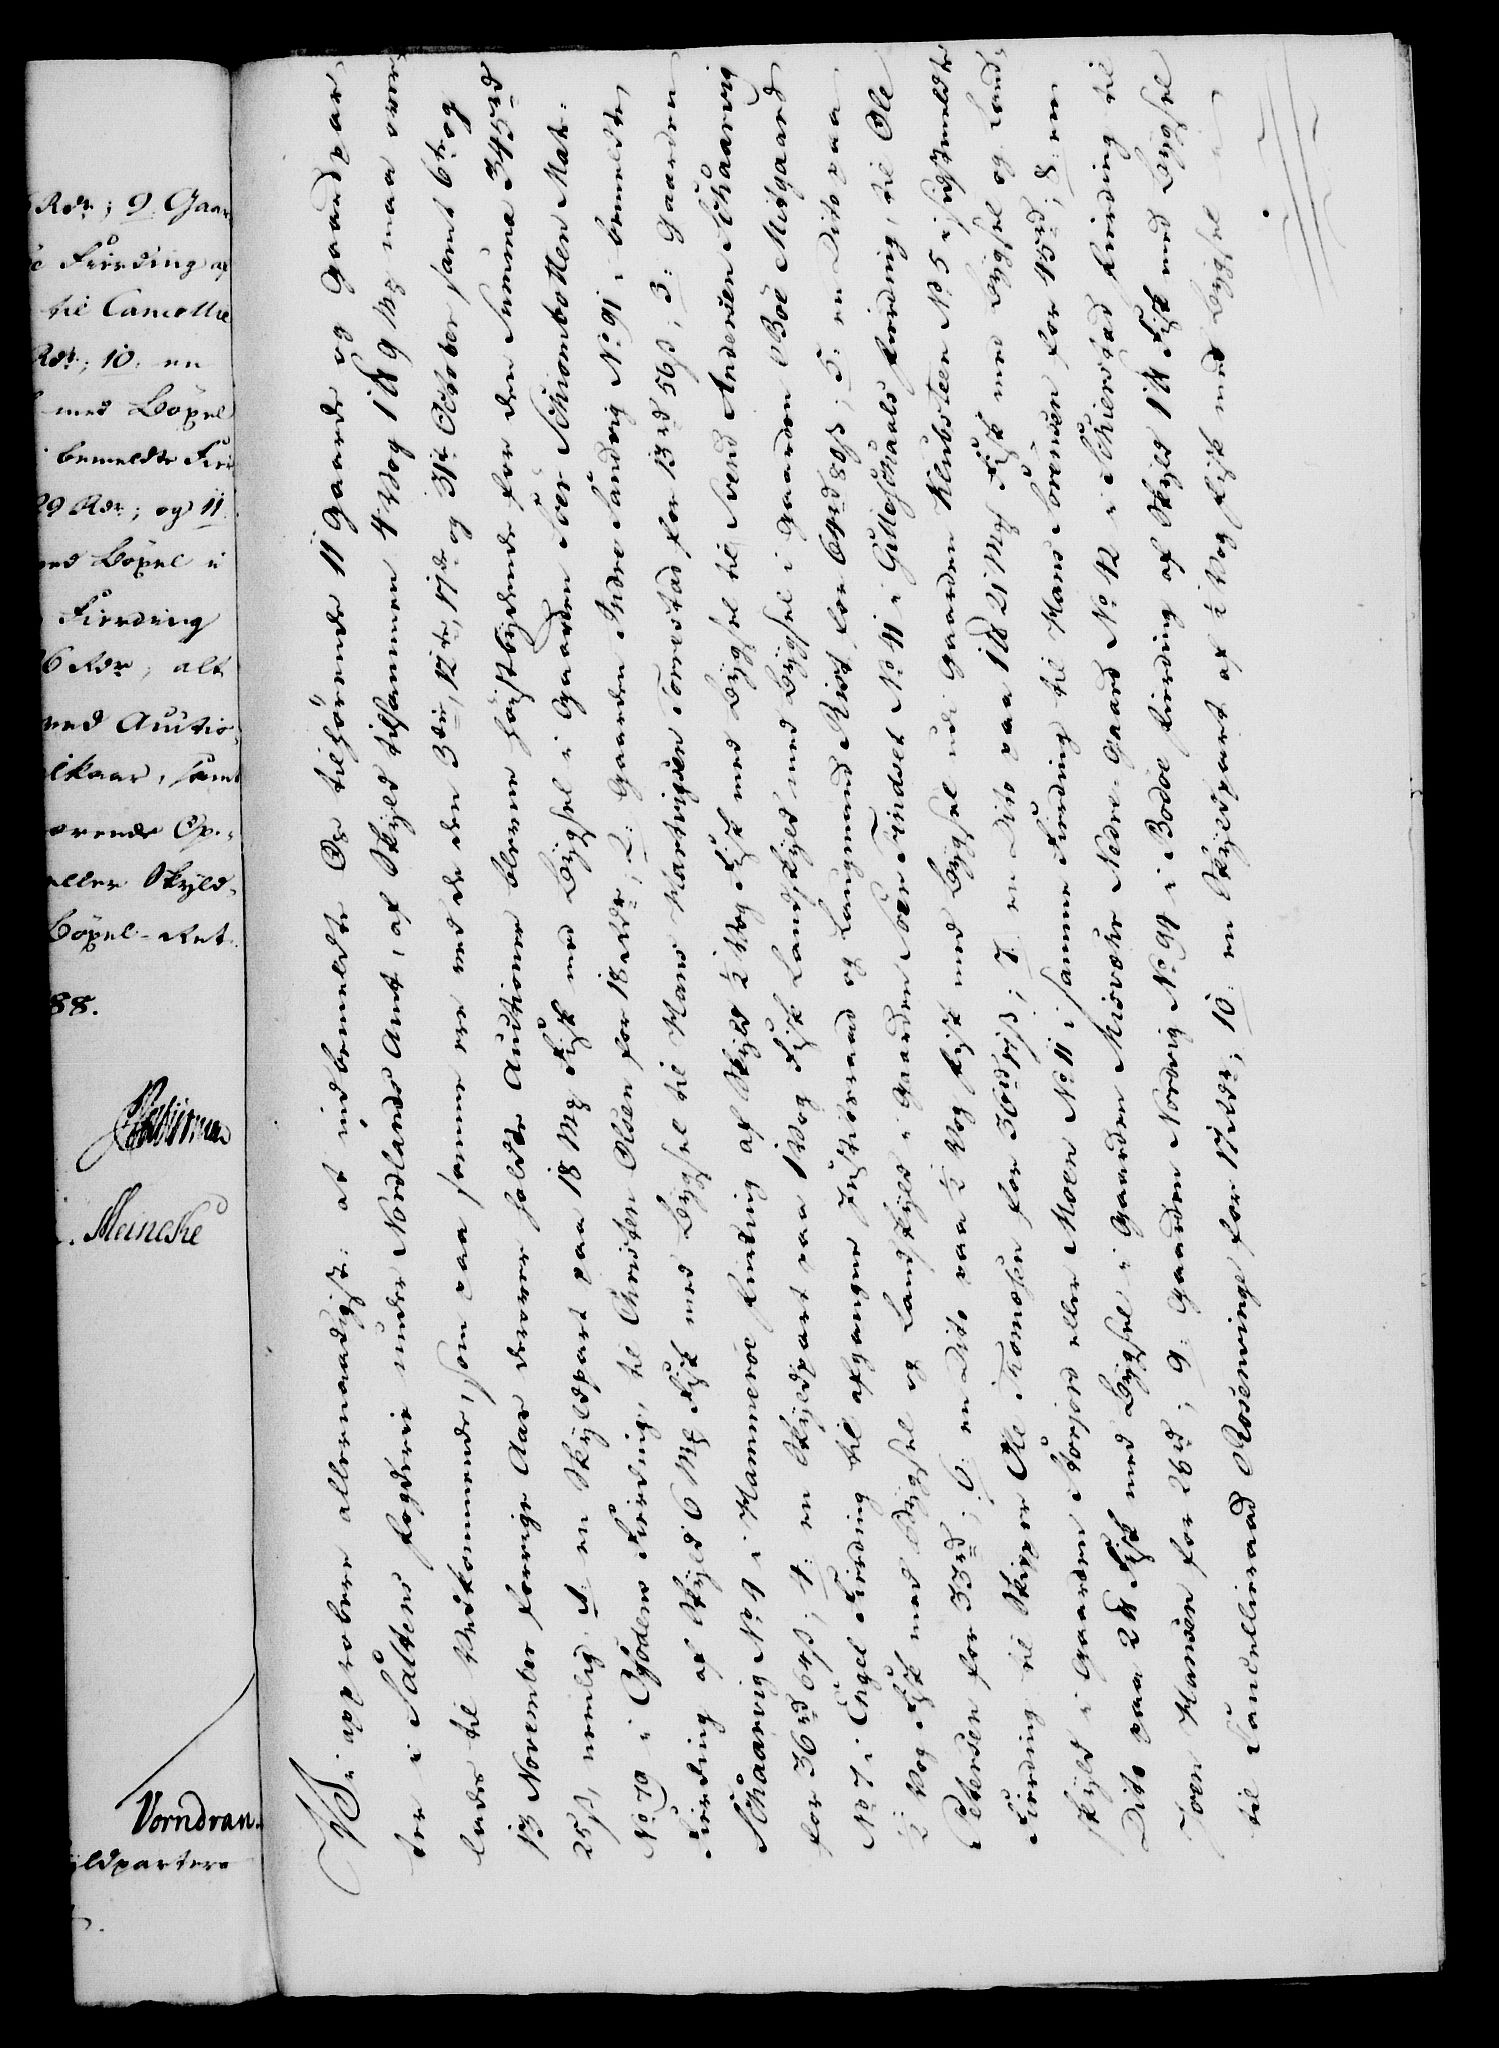 Rdr; 9. Gaar
Fierding af
til Cancellie
Rdr; 10. en
med Böxel
bemeldte Fier
29 Rdr; og 11
med Böxel i
Fierding
6 Rdr, alt
med Auctio
lkaar, samt
værende Op-
eller Skyld-
Böxel-Ret
88.
Meincke
Vorndran
ldparterne
Vi approbere allernaadigst: at indbemeldte Os tilhørende 11 Gaarde og Gaardpar-
ter i Saltens Fogderie under Nordlands Amt, af Skyld tilsammen 4 Vog 1 ℔ 9 Mk maa over-
lades til Vedkommende, som paa samme ere ved de den 3die, 12te, 17de og 31te October samt 6te og
13 November forrige Aar derover holdte Auctioner blevne høistbydende for den Summa 345 rd
25 ß, nemlig: 1: en Skyldpart paa 18 Mk Fisk med Bygsel i Gaarden Soer Schrombotten Mat:
No 79 i Ofodens Fierding, til Christen Olsen for 18 Rdr, 2: Gaarden Indre Sandvig No 91 i bemeldte
Fierding af Skyld 6 Mk Fisk med Bygsel til Hans Hartvigsen Torrestad for 13 rd 56 ß; 3: Gaarden
Schaarvig No 9 i Hammeröe Fierding af Skyld ½ Vog Fisk med Bygsel til Svend Andersen Schaarvig
for 36 rd 64 ß; 4: en Skyldpart paa 1 Vog Fisk Landskyld med Bygsel i Gaarden Böe Mitgaard
No 7 i Engel. Fierding til afgangne Justitsraad og Laugmand Rist for 64 rd 80 ß; 5: en Dito paa
½ Vog Fisk med Bygsel og Landskyld i Gaarden Soer Findset No 41 i Gilleschaals Fierding, til Ole
Petersen for 33 rd; 6: en Dito paa ½ Vog Fisk med Bygsel udi Gaarden Klubsteen No 5 i sidstmeldte
Fierding til Skipper Ole Thomesen for 36 rd ß; 7 en Dito paa 1 ℔ 21 Mk Fisk med Bygsel og Land-
skyld i Gaarden Storjord eller Moen No 11 i samme Fierding til Hans Sörensen for 45 rd; 8: en
Dito paa 2 ℔ Fisk med Bygsel i Gaarden Misvæhr Nedre Gaard No 42 i Schierstad Fierding til
Joen Hansen for 26 rd; 9: Gaarden Nordvig No 94 i Bodöe Fierding af Skyld 1 ℔ Fisk med Bygsel
til Cancellieraad Rosenvinge for 17 Rdr; 10: en Skyldpart af ½ Vog Fisk med Bygsel i